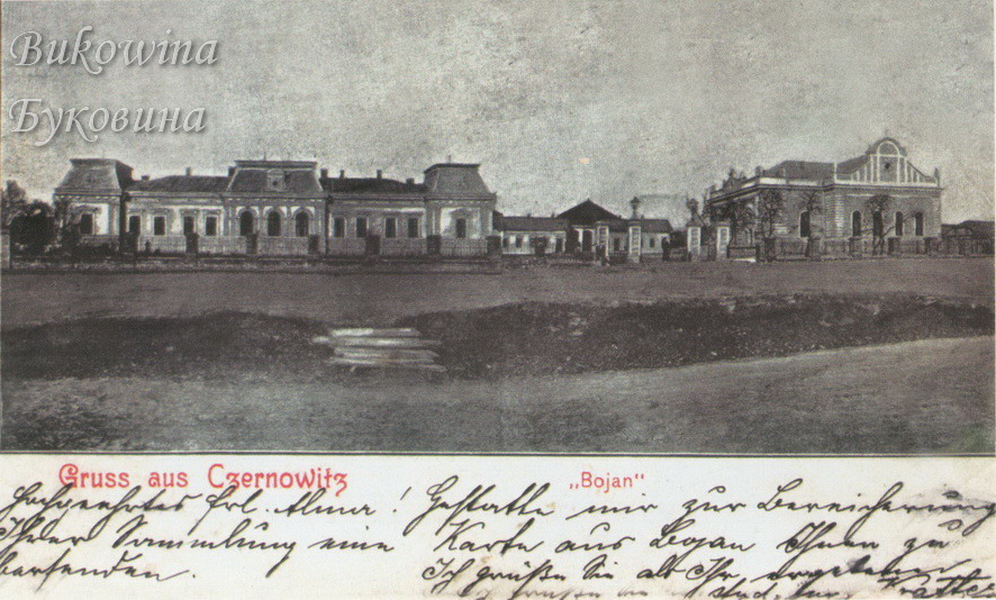 Bukowina
Буковина
Gruss aus Czernowitz
„Bojan“
Hochgeehrtes Frl. Alma! Gestatte mir zur Bereicherung
Ihrer Sammlung eine Karte aus Bojan Ihnen zu
Ich grüße Sie als Ihr ergebener